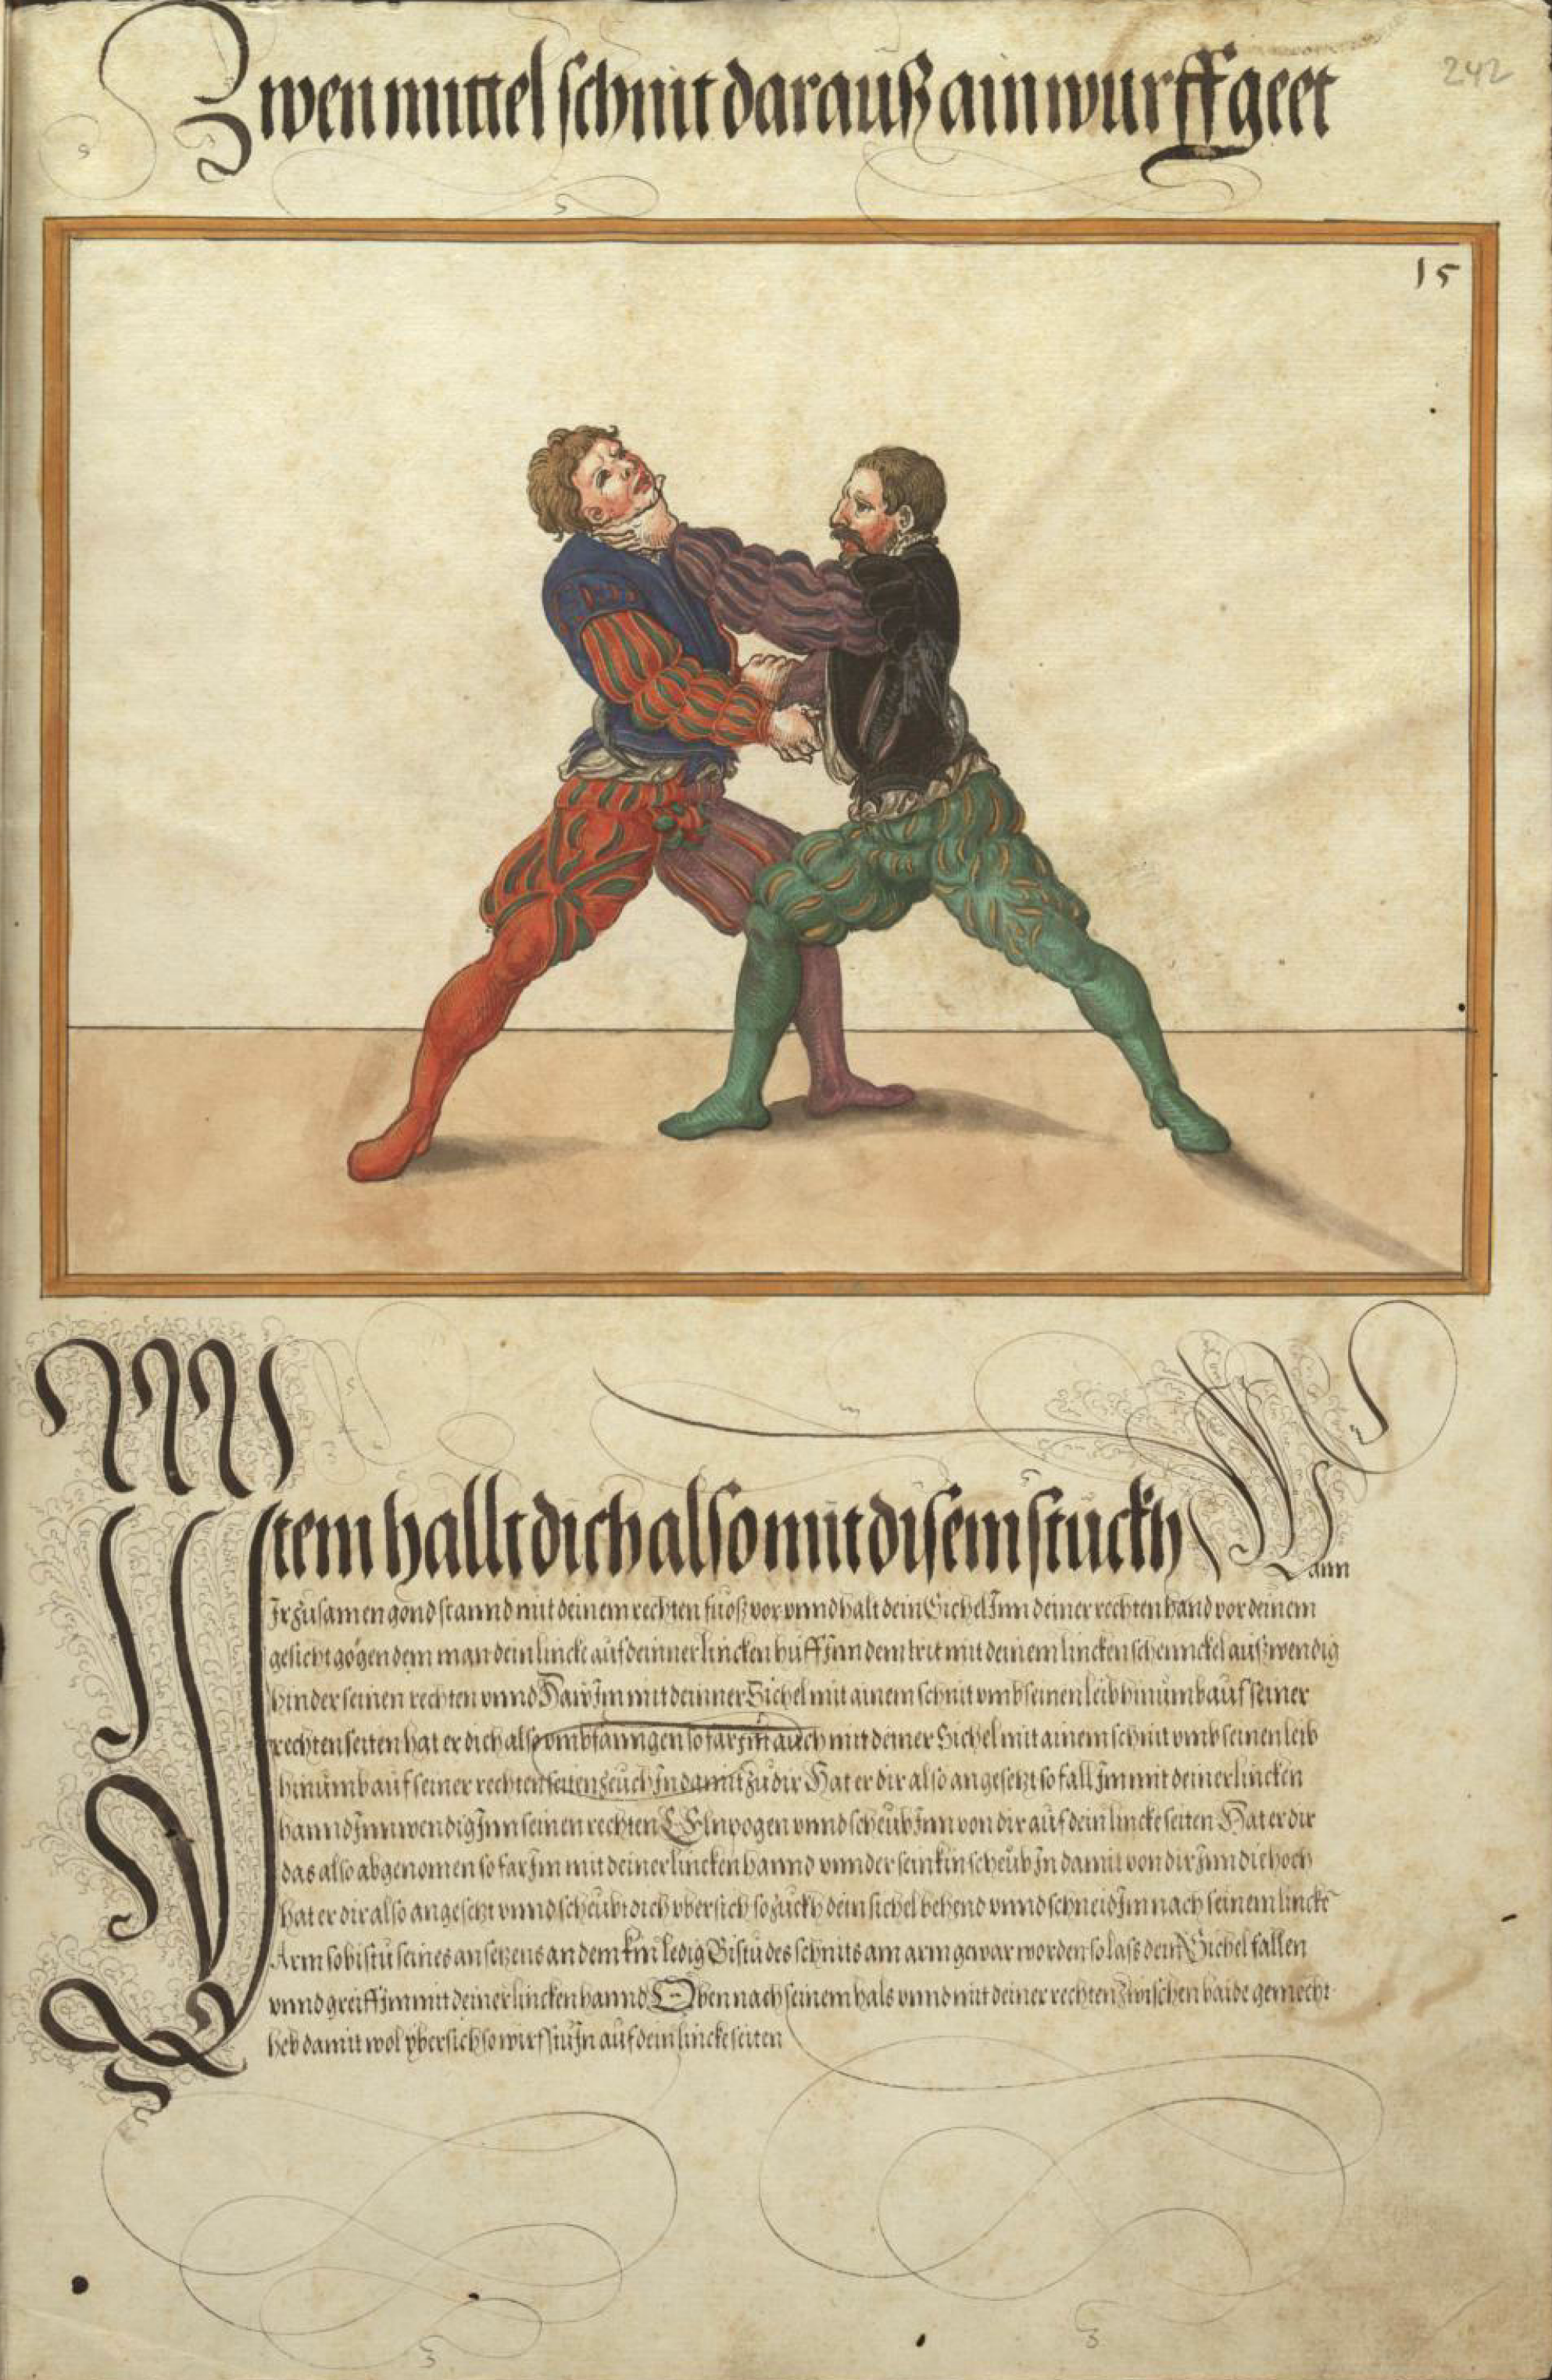 242
Zwen mittel schnit darauß ain wurff geet
15
Item hallt dich also mit disem stuckh Wann
Ir zusamen gond so stannd mit deinem rechten fuoß vor vnnd halt dein Sichel Inn deiner rechten hand vor deinem
gesicht gögen dem man dein lincke auf deinner lincken hüff Inn dem trit mit deinem lincken schennckel außwendig
hinder seinen rechten vnnd Haw Im mit deinner Sichel mit ainem schnit vmb seinen leib hinumb auf seiner
rechten seiten hat er dich also vmbfanngen so far Im auch mit deiner Sichel mit ainem schnit vmb seinen leib
hinumb auf seiner rechten seiten zeuch In damit zu dir Hat er dir also angesetzt so fall Im mit deiner lincken
hannd Innwendig Inn seinen rechten Elnpogen vnnd scheub Inn von dir auf dein lincke seiten Hat er dir
das also abgenomen so far Im mit deiner lincken hannd vnnder sein kin scheub In damit von dir Inn die hoch
hat er dir also angesetzt vnnd scheubt dich vbersich so zuckh dein sichel behend vnnd schneid Im nach seinem lincke
Arm so bistu seines ansetzens an dem kin ledig Bistu des schnits am arm gewar worden so lass dein Sichel fallen
vnnd greiff Im mit deiner lincken hannd Oben nach seinem hals vnnd mit deiner rechten zwischen baide gemecht
heb damit wol vbersich so wirfstu In auf dein lincke seiten